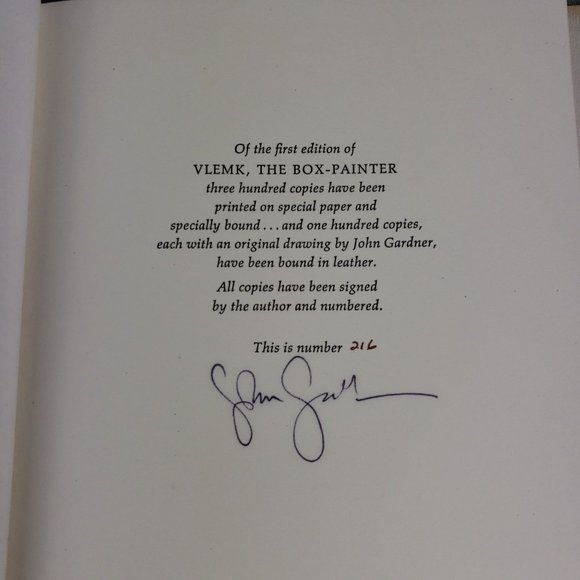 Of the first edition of
VLEMK, THE BOX-PAINTER
three hundred copies have been
printed on special paper and
specially bound . . . and one hundred copies,
each with an original drawing by John Gardner,
have been bound in leather.
All copies have been signed
by the author and numbered.
This is number 216
John Gardner